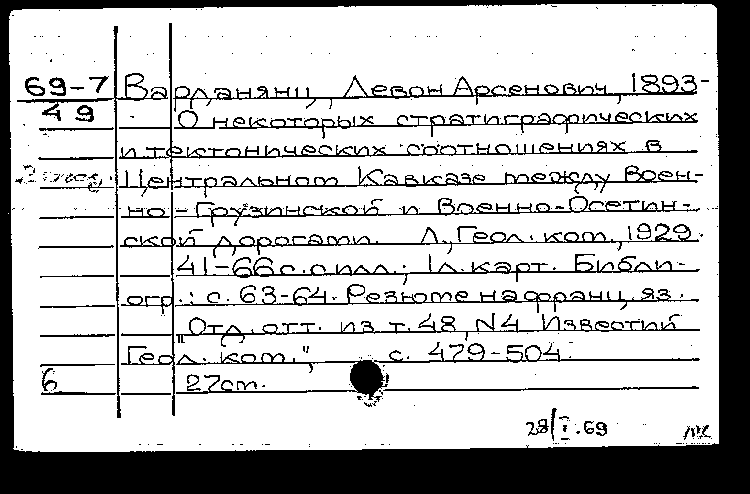 69-7 Варданянц, Левон Арсенович, 1893-
49 О некоторых стратиграфических
и тектонических соотношениях в
2 экз. Центральном Кавказе между Воен-
но-Грузинской и Военно-Осетин-
ской дорогами. Л., Геол. ком., 1929.
41-66 с. с илл.; 1 л. карт. Библи-
огр.: с. 63-64. Резюме на франц. яз.
"Отд. отт. из т. 48, N4 Известий
Геол. ком.", с. 479-504.
6 27 cm.
28/I.69 МК